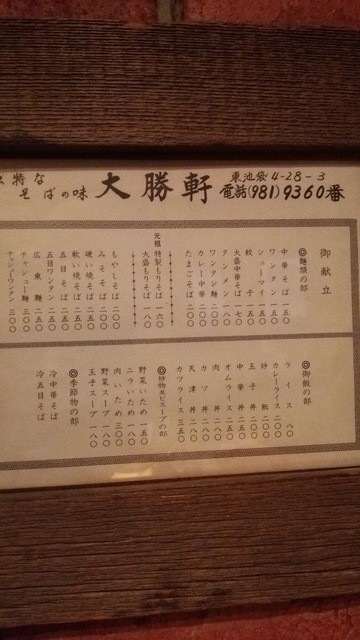 特な
そばの味
大勝軒
東池袋4-28-3
電話(981)9360番
御献立
◎麺類の部
中華そば 一五〇
ワンタン 一五〇
シューマイ 一五〇
餃子 一五〇
大盛中華そば 一七〇
タンメン 一八〇
ワンタン麺 二〇〇
カレー中華 二〇〇
たまごそば 二〇〇
元祖 特製もりそば 一六〇
大盛もりそば 一八〇
もやしそば 二〇〇
みそそば 二〇〇
硬い焼そば 二五〇
軟い焼そば 二五〇
五目そば 二五〇
五目ワンタン 二五〇
広東麺 二五〇
チャシュー麺 三〇〇
チャシューワンタン 三〇〇
◎御飯の部
ライス 八〇
カレーライス 二〇〇
炒飯 二〇〇
玉子丼 二〇〇
中華丼 二五〇
オムライス 二五〇
肉丼 二八〇
カツ丼 二八〇
天津丼 二八〇
カツライス 三五〇
◎炒物及ビスープの部
野菜いため 一五〇
ニラいため 一八〇
肉いため 三〇〇
野菜スープ 一八〇
玉子スープ 一八〇
◎季節物の部
冷中華そば
冷五目そば